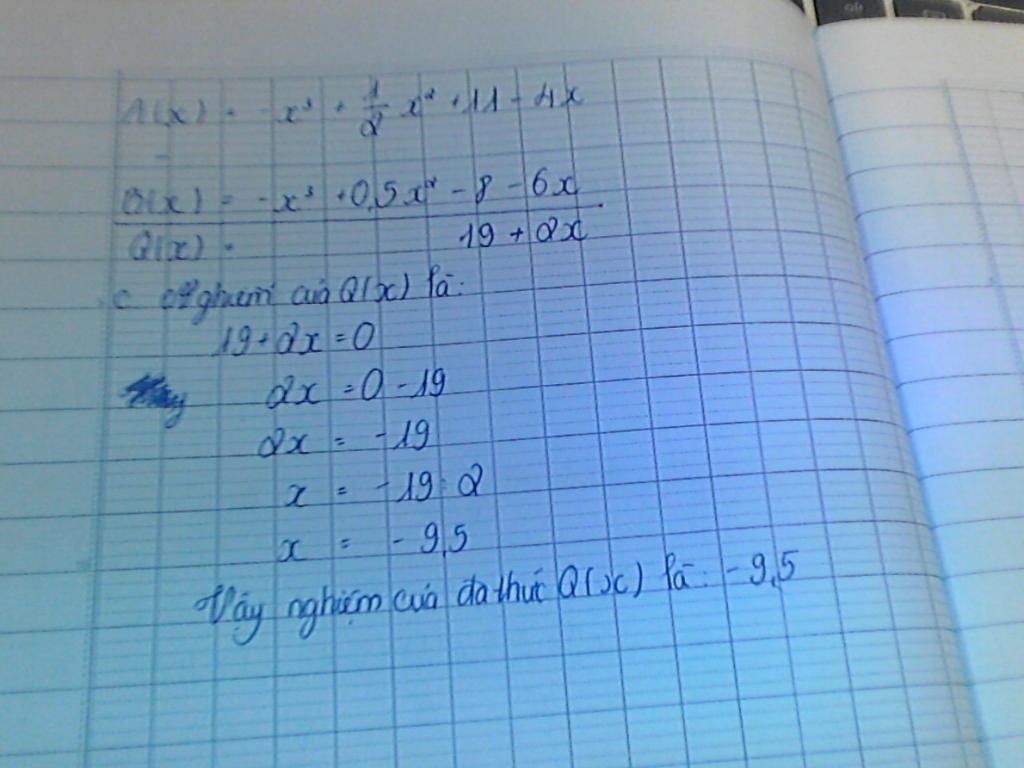 A(x) = -x³ + 1/2 x² + 11 - 4x
-
B(x) = -x³ + 0,5x² - 8 - 6x
Q(x) = 19 + 2x
c Nghiệm của Q(x) là:
19 + 2x = 0
2x = 0 - 19
2x = -19
x = -19 : 2
x = - 9,5
Vậy nghiệm của đa thức Q(x) là: - 9,5